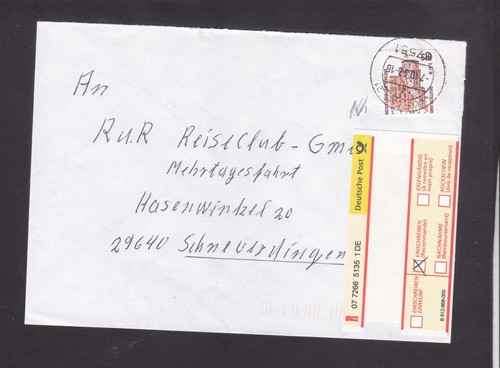 An
R u. R Reiseclub-Gm
Mehrtagesfahrt
Hasenwinkel 20
29640 Schneverdingen
Deutsche Post
R 07 7266 5135 1 DE
EIGENHÄNDIG
(A remettre en
main propre)
RÜCKSCHEIN
(Avis de réception)
EINSCHREIBEN
(Recommandé)
NACHNAHME
(Remboursement)
EINSCHREIBEN
EINWURF
912-668-000